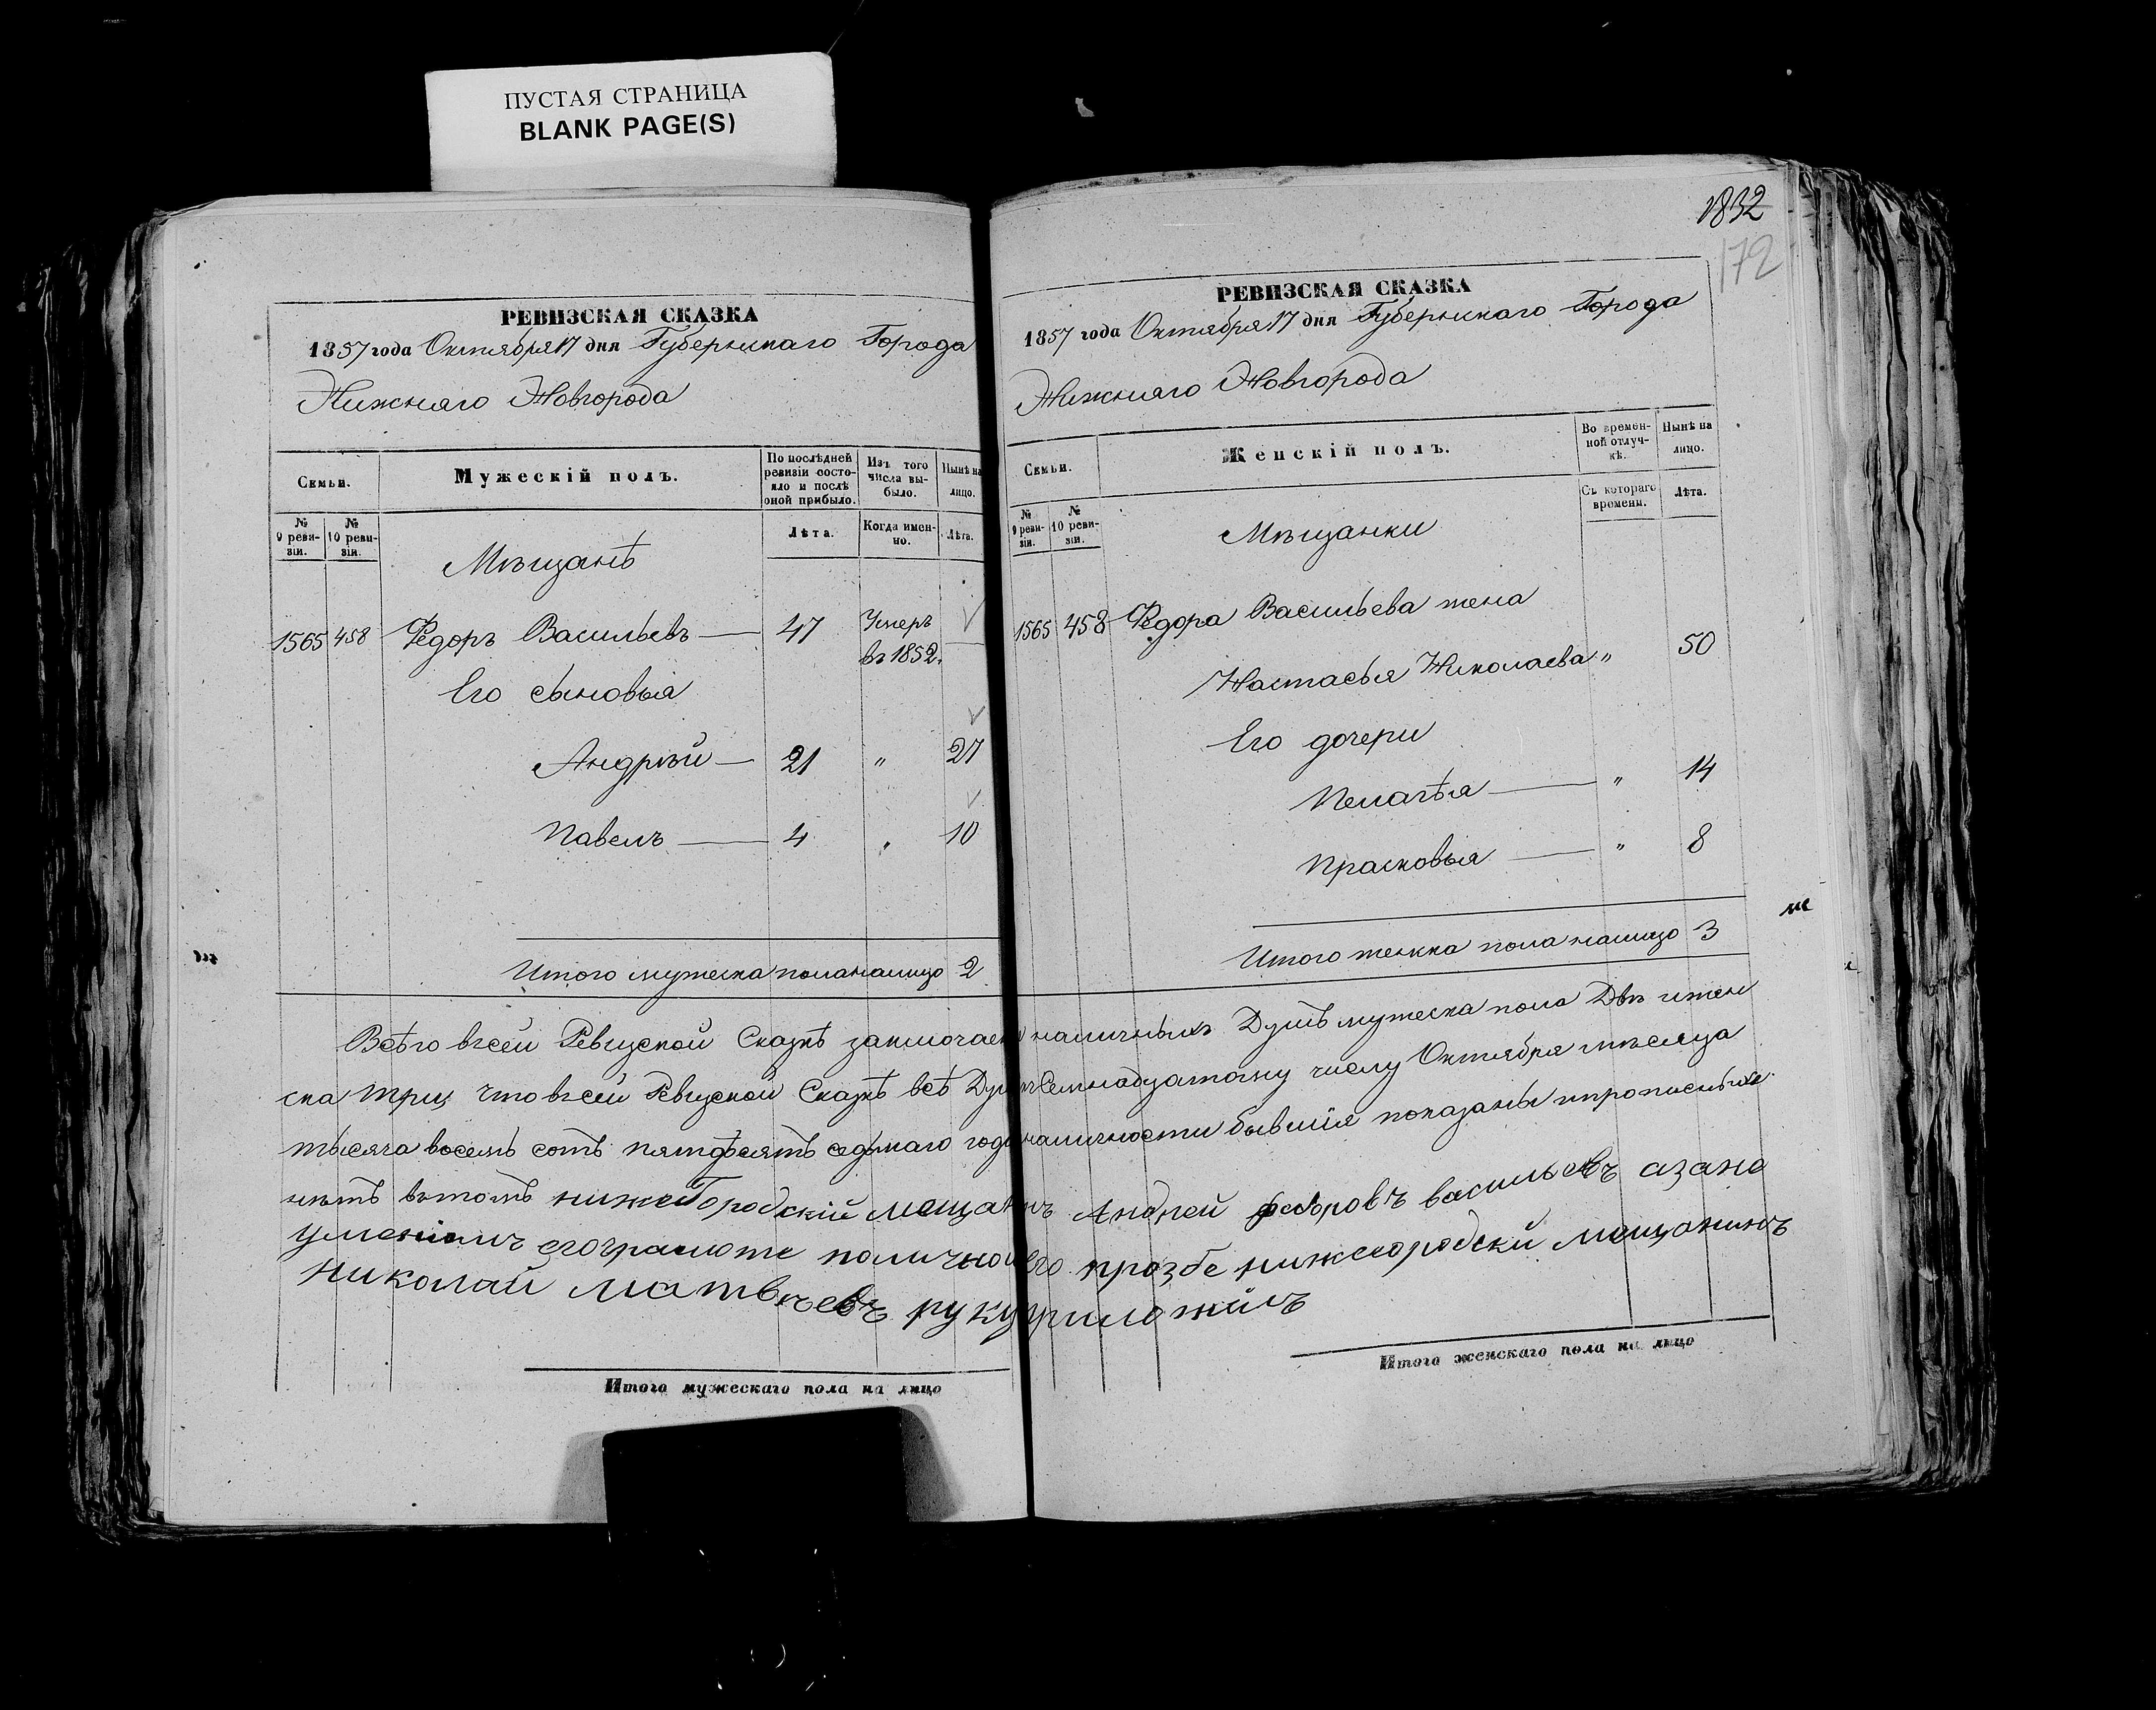 ПУСТАЯ СТРАНИЦА
BLANK PAGE(S)
РЕВИЗСКАЯ СКАЗКА
1857 года Октября 17 дня Губернскаго Города
Нижняго Новгорода
Семьи.
Мужескій полъ.
По послѣдней ревизіи состояло и послѣ оной прибыло.
Изъ того числа выбыло.
Нынѣ на лицо.
№ 9 ревизіи.
№ 10 ревизіи.
Лѣта.
Когда именно.
Лѣта.
Мѣщанѣ
1565 458 Ѳедоръ Васильевъ — 47 Умеръ
въ 1852. —
Его сыновья
Андрѣй — 21 " 27
Павелъ — 4 " 10
Итого мужеска пола налицо 2
1832
172
РЕВИЗСКАЯ СКАЗКА
1857 года Октября 17 дня Губернскаго Города
Нижняго Новгорода
Семьи.
Женскій полъ.
Во временной отлучкѣ.
Нынѣ на лицо.
№ 9 ревизіи.
№ 10 ревизіи.
Съ котораго времени.
Лѣта.
Мѣщанки
1565 458 Ѳедора Васильева жена
Настасья Николаева " 50
Его дочери
Пелагѣя — " 14
Прасковья — " 8
Итого женска пола налицо 3
Всѣго въсей Ревизской Сказкѣ заключается наличныхъ Душъ мужеска пола Двѣ ижен
ска три что въсей Ревизской Сказкѣ всѣ Души къ Семнадцатому числу Октября мѣсяца
тысяча восемь сотъ пятдѣсятъ седьмаго года наличности бывшія показаны ипрописныхъ
нѣтъ вътомъ нижегородский мещанинъ Андрей федоровъ васильевъ азане
умениемъ егограмоте поличной его прозбе нижегородски мещанинъ
николай матвѣевъ руку приложилъ
Итого мужескаго пола на лицо
Итого женскаго пола на лицо